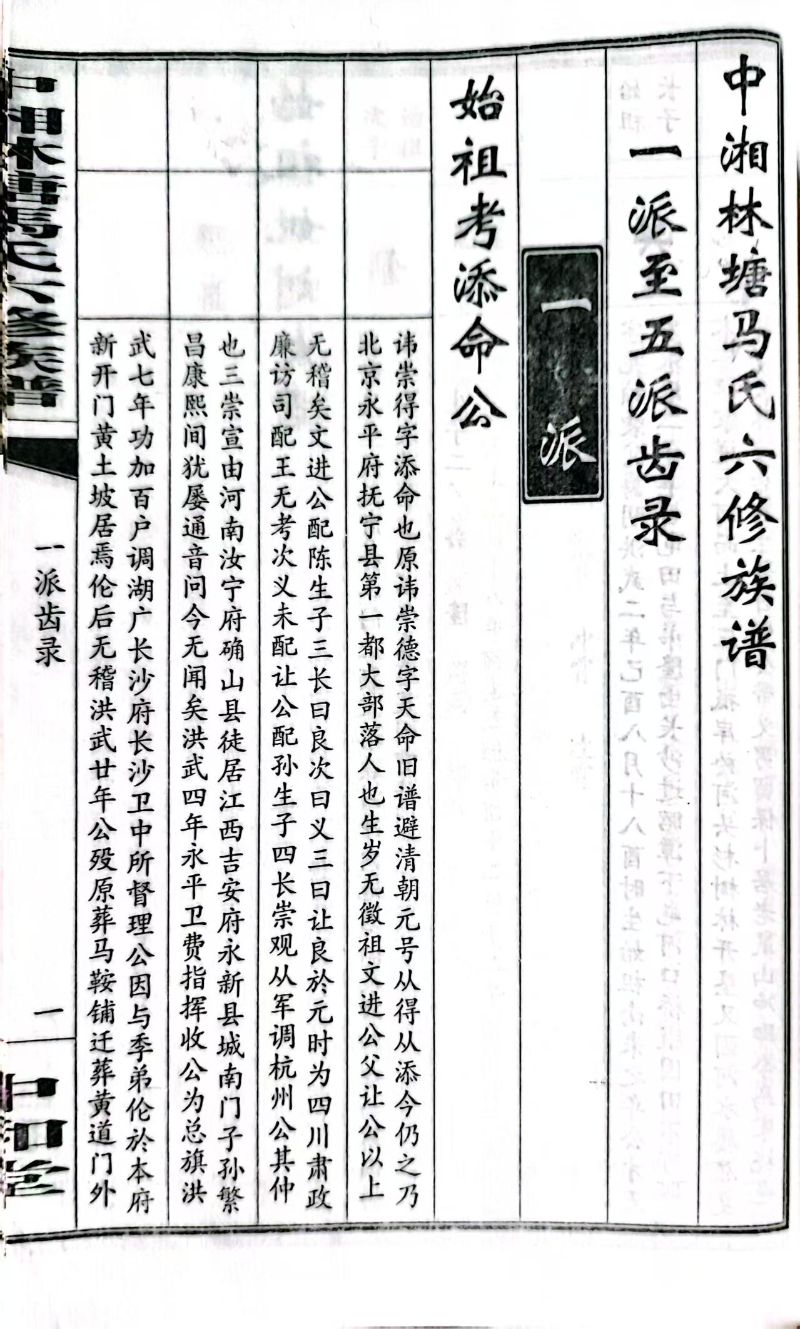 中湘林塘马氏六修族谱
一派至五派齿录
一派
始祖考添命公
讳崇得字添命也原讳崇德字天命旧谱避清朝元号从得从添今仍之乃
北京永平府抚宁县第一都大部落人也生岁无徵祖文进公父让公以上
无稽矣文进公配陈生子三长曰良次曰义三曰让良於元时为四川肃政
廉访司配王无考次义未配让公配孙生子四长崇观从军调杭州公其仲
也三崇宣由河南汝宁府确山县徒居江西吉安府永新县城南门子孙繁
昌康熙间犹屡通音问今无闻矣洪武四年永平卫费指挥收公为总旗洪
武七年功加百户调湖广长沙府长沙卫中所督理公因与季弟伦於本府
新开门黄土坡居焉伦后无稽洪武廿年公殁原葬马鞍铺迁葬黄道门外
中湘林塘馬氏六修族譜
一派齿录
一
中和堂